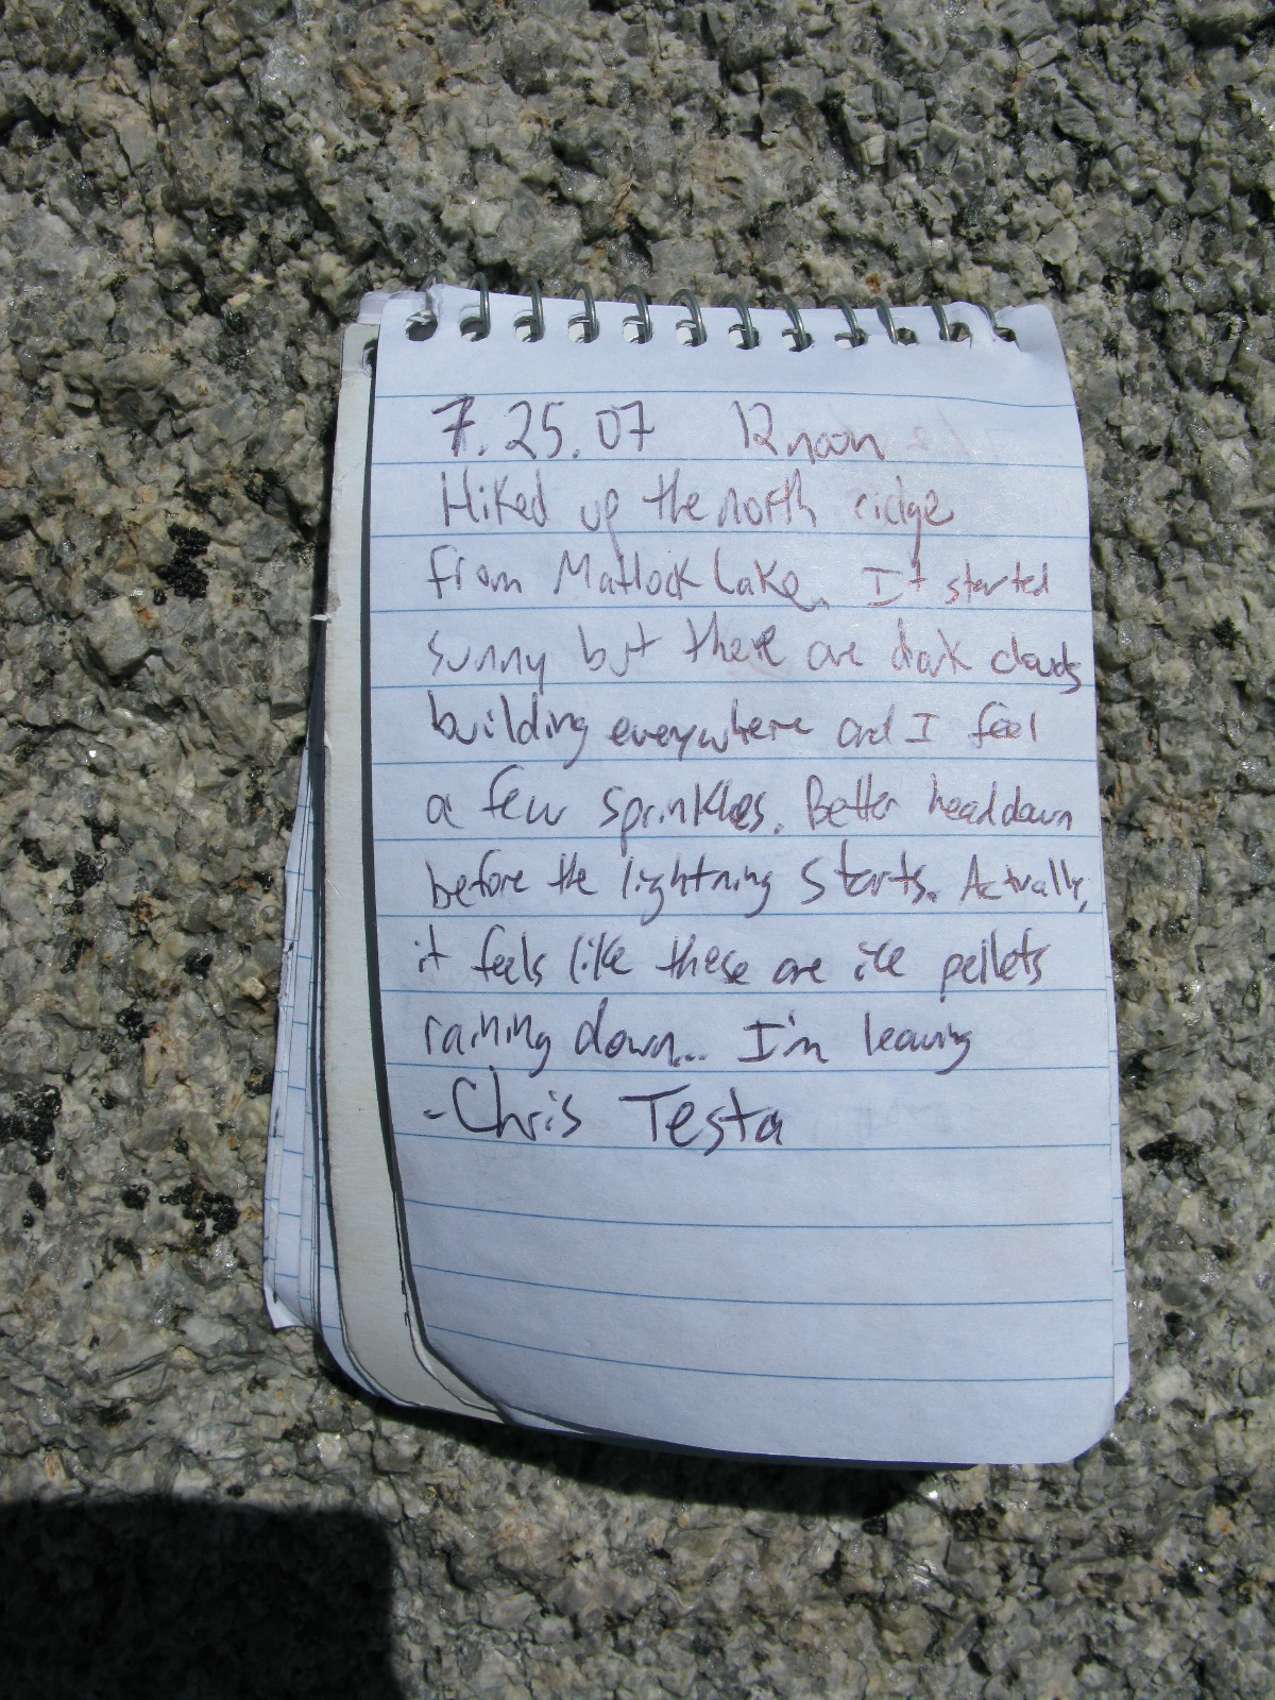 7.25.07 12 noon
Hiked up the north ridge
from Matlock Lake. It started
sunny but there are dark clouds
building everywhere and I feel
a few sprinkles. Better head down
before the lightning starts. Actually,
it feels like these are ice pellets
raining down... I'm leaving
-Chris Testa